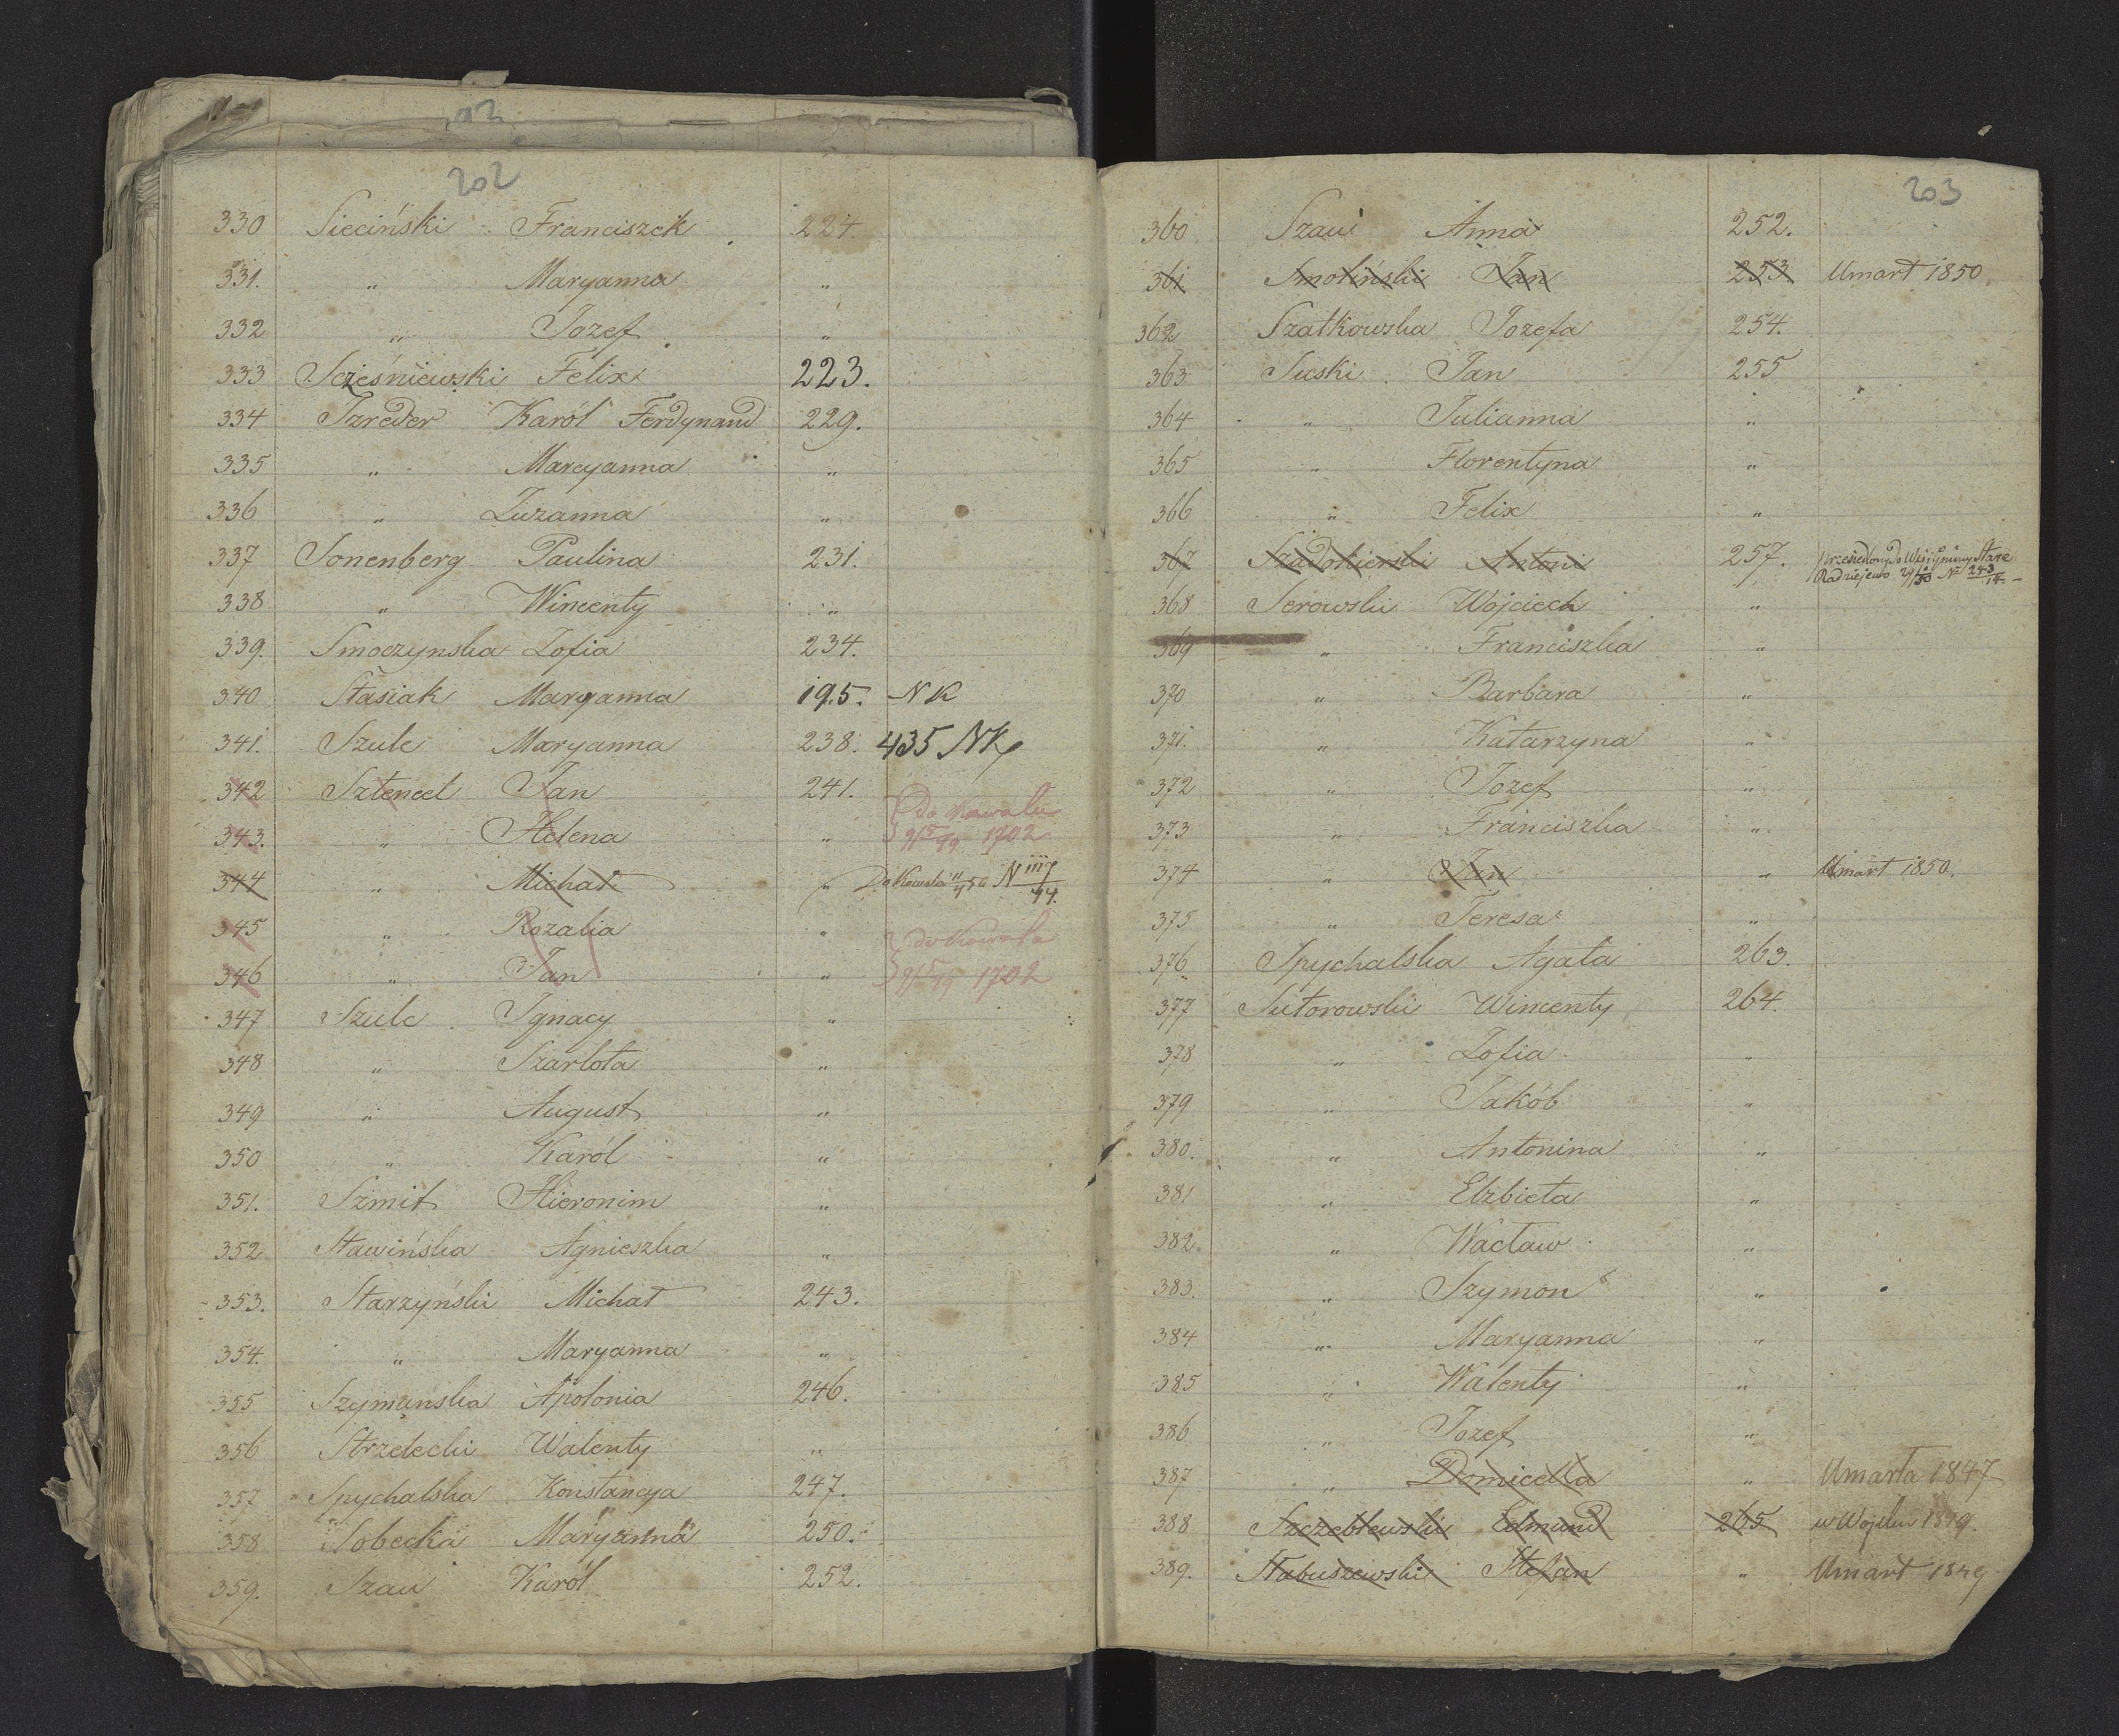 202
330 Sieciński Franciszek 224.
331. " Maryanna "
332 " Jozef "
333 Scześniewski Felix 223.
334 Szreder Karól Ferdynand 229.
335 " Maryanna "
336 " Zuzanna "
337 Sonenberg Paulina 231.
338 " Wincenty "
339. Smoczynska Zofia 234.
340 Stasiak Maryanna 195. NK
341. Szulc Maryanna 238. 435 NK
342 Sztencel Jan 241. do Kowala
343. " Helena " 1702
344 " Michał " Do Kowala
345 " Rozalia " do Kowala
346 " Jan " 1702
347 Szulc Ignacy "
348 " Szarlota "
349 " August "
350 " Karól "
351. Szmit Hieronim "
352 Stawińska Agnieszka "
353. Starzyński Michał 243.
354. " Maryanna "
355 Szymańska Apolonia 246.
356 Strzelecki Walenty "
357 Spychalska Konstancya 247.
358 Sobecka Maryanna 250.
359. Szau Karól 252.
203
360 Szau Anna 252.
361 Smoliński Jan 253. Umarł 1850
362 Szatkowska Jozefa 254.
363 Suski Jan 255
364 " Julianna "
365 " Florentyna "
366 " Felix "
367 Szadokierski Antoni 257. przesiedlony do Wsi i Gminy Stare
Radziejewo 29/50 No 243/14.
368 Serowski Wojciech "
369 " Franciszka "
370 " Barbara "
371. " Katarzyna "
372 " Jozef "
373 " Franciszka "
374 " Jan " Umarł 1850.
375 " Teresa "
376 Spychalska Agata 263.
377 Sutorowski Wincenty 264.
378 " Zofia "
379 " Jakób "
380. " Antonina "
381 " Elzbieta "
382. " Wacław "
383. " Szymon "
384 " Maryanna "
385 " Walenty "
386 " Jozef "
387 " Domicella " Umarła 1847
388 Szczeblewski Edmund 265 w Wojsku 1849.
389. Stabuszewski Stefan " Umarł 1849